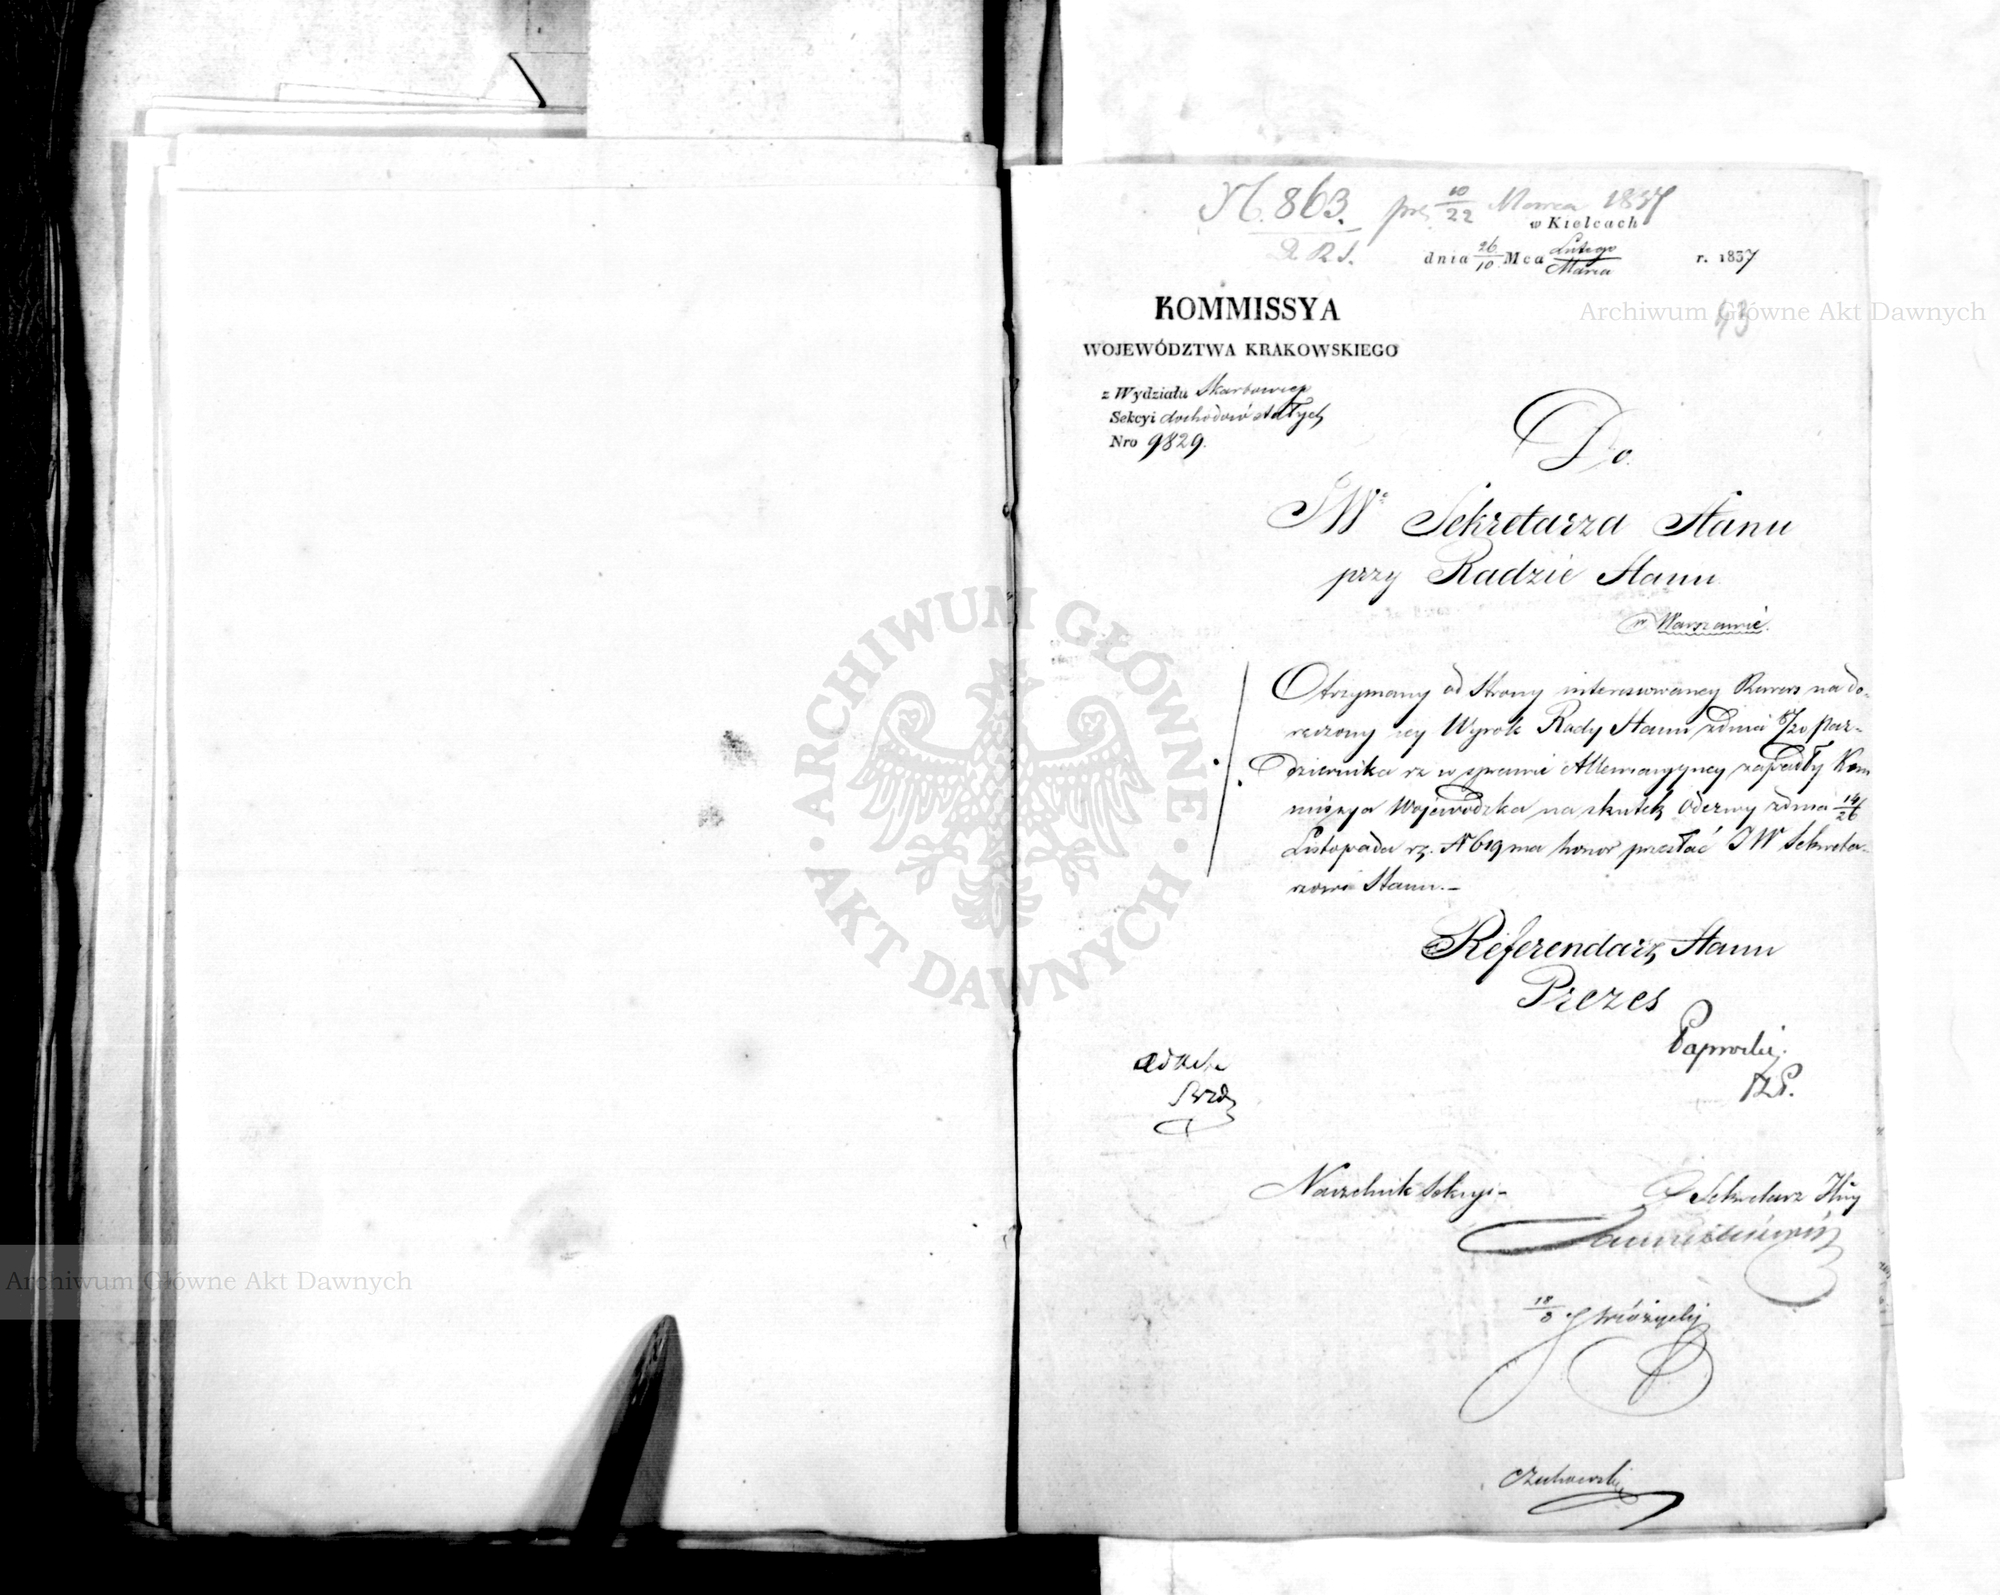 N. 863. prs 10/22 Marca 1837
w Kielcach
D. R. S.
dnia 26/10 Mca Lutego/Marca r. 1837
43
KOMMISSYA
WOJEWÓDZTWA KRAKOWSKIEGO
z Wydziału Skarbowego
Sekcyi dochodów stałych
Nro 9829.
Do
JWo Sekretarza Stanu
przy Radzie Stanu
w Warszawie.
Otrzymany od Strony interesowaney Rewers na do-
ręczony jey Wyrok Rady Stanu z dnia 8/20 Paz-
dziernika rz w sprawie zapadły Kom
missya Wojewódzka na skutek Odezwy z dnia 14/26
Listopada rz. N 619 ma honor przesłać JW Sekreta-
rzowi Stanu.-
Referendarz Stanu
Prezes
Naczelnik Sekcyi-
Sekretarz Jlny
18/3
Archiwum Główne Akt Dawnych
Archiwum Główne Akt Dawnych
ARCHIWUM GŁÓWNE
AKT DAWNYCH